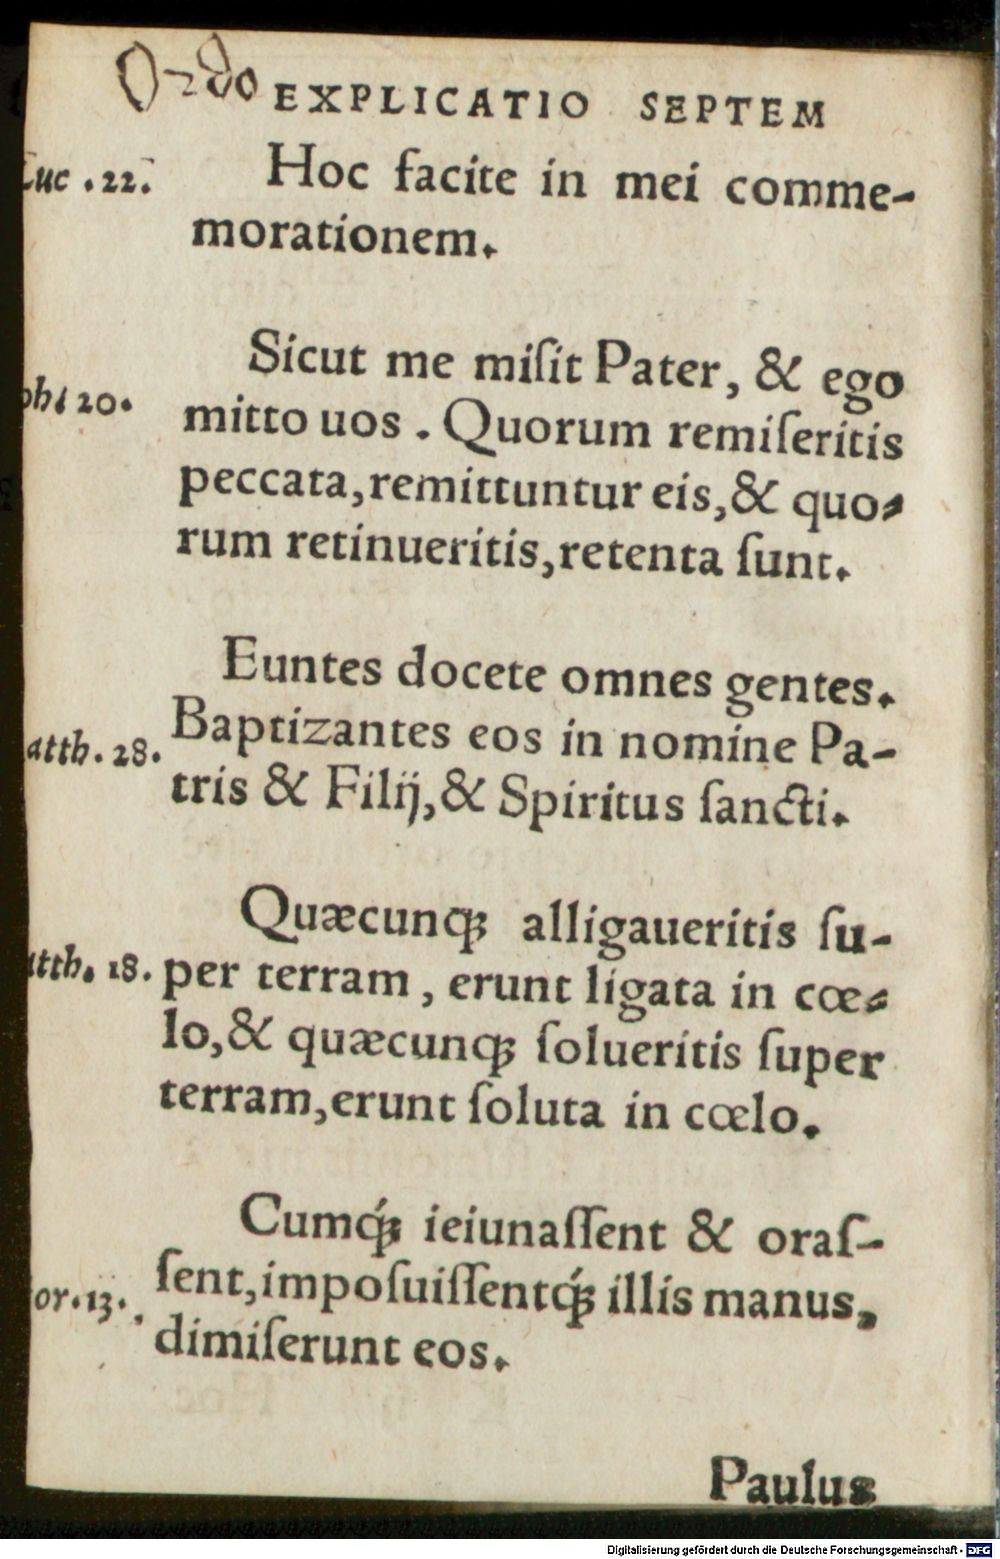 Ordo EXPLICATIO SEPTEM
Luc .22. Hoc facite in mei comme-
morationem.
Sicut me miſit Pater, & ego
ohi 20. mitto uos . Quorum remiſeritis
peccata, remittuntur eis, & quo-
rum retinueritis, retenta ſunt.
Euntes docete omnes gentes.
Baptizantes eos in nomine Pa-
atth. 28. tris & Filij, & Spiritus ſancti.
Quæcunqꝫ alligaueritis ſu-
atth. 18. per terram, erunt ligata in cœ-
lo, & quæcunqꝫ ſolueritis ſuper
terram, erunt ſoluta in cœlo.
Cumq́ꝫ ieiunaſſent & oraſ-
or. 13. ſent, impoſuiſſentq́ꝫ illis manus,
dimiſerunt eos.
Paulus
Digitalisierung gefördert durch die Deutsche Forschungsgemeinschaft - DFG